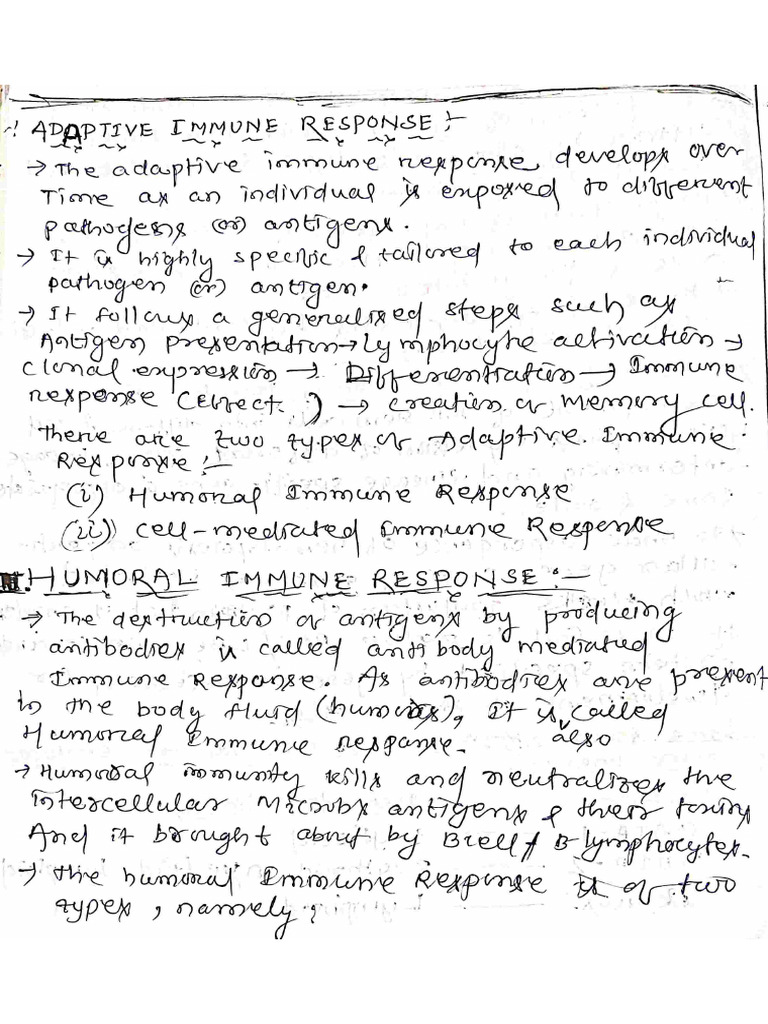 ADAPTIVE IMMUNE RESPONSE :-
→ The adaptive immune response develops over
Time as an individual is exposed to different
pathogens (or) antigens.
→ It is highly specific & tailored to each individual
pathogen (or) antigen.
→ It follows a generalized steps such as
Antigen presentation → Lymphocyte activation →
clonal expression → Differentiation → Immune
response (Effect.) → creation of memory cell.
There are two types of Adaptive Immune
Response :-
(i) Humoral Immune Response
(ii) cell-mediated Immune Response
HUMORAL IMMUNE RESPONSE :-
→ The destruction of antigens by producing
antibodies is called antibody mediated
Immune Response. As antibodies are present
in the body fluid (humors), It is also called
Humoral Immune response.
→ Humoral immunity kills and neutralizes the
intercellular Microbs antigens & their toxins
And it brought about by Bcell / B-lymphocytes.
→ the humoral Immune Response is of two
types, namely;